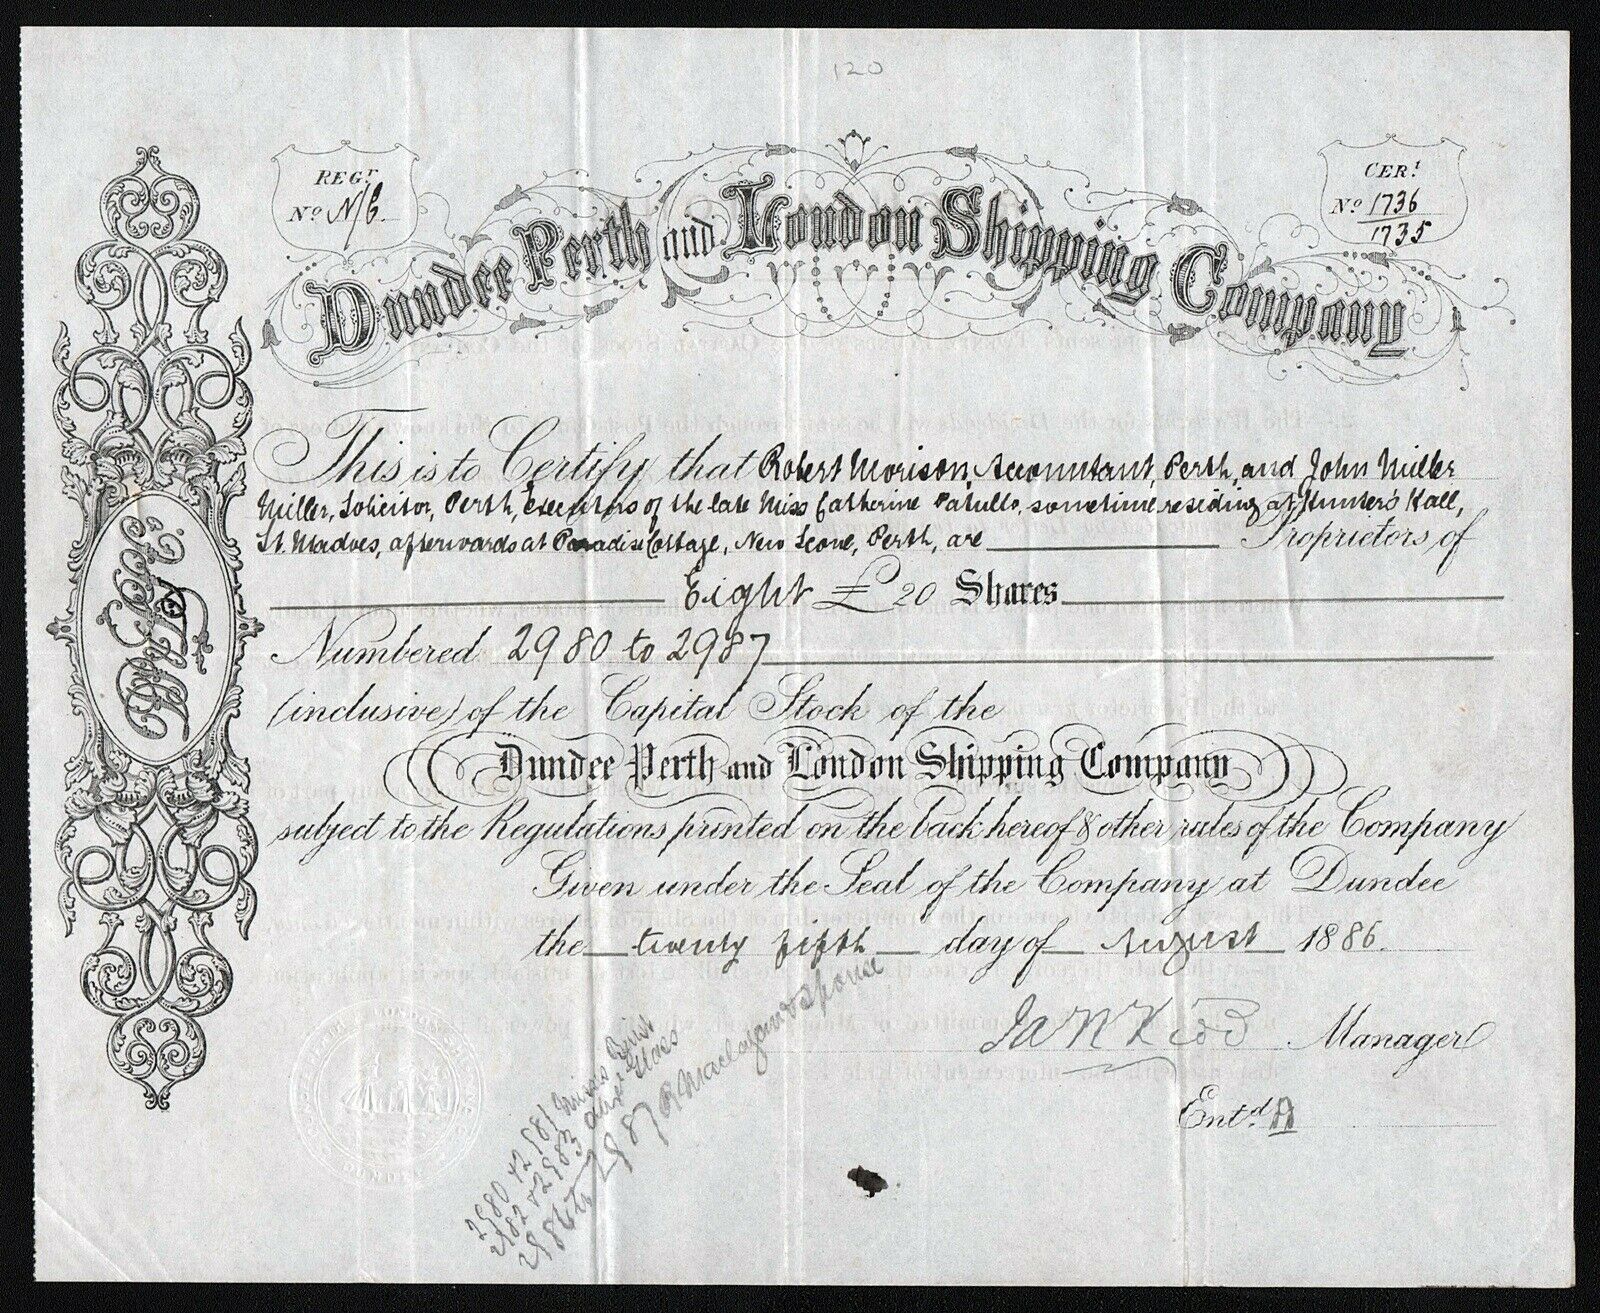 120
REGT.
No. N/6.
CERT.
No. 1736
1735
Dundee Perth and London Shipping Company
This is to Certify that Robert Morison, Accountant, Perth, and John Miller
Miller, Solicitor, Perth, Executors of the late Miss Catherine Patullo, sometime residing at Hunter's Hall,
St. Madoes, afterwards at Paradise Cottage, New Scone, Perth, are Proprietors of
Eight £20 Shares
Numbered 2980 to 2987
(inclusive) of the Capital Stock of the
Dundee Perth and London Shipping Company
subject to the Regulations printed on the back hereof & other rules of the Company
Given under the Seal of the Company at Dundee
the twenty fifth day of August 1886.
Manager
Entd. A
2980 & 2981 Miss
2982 & 2983
2987 R Maclagan & spouse
DUNDEE